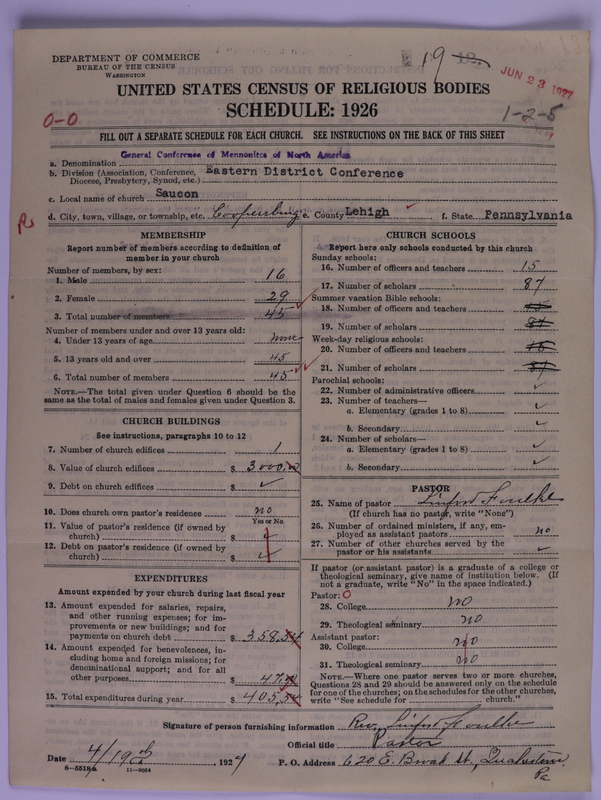 DEPARTMENT OF COMMERCE
BUREAU OF THE CENSUS
WASHINGTON
19
JUN 23 1927
UNITED STATES CENSUS OF RELIGIOUS BODIES
SCHEDULE: 1926
1-2-5
0-0
FILL OUT A SEPARATE SCHEDULE FOR EACH CHURCH. SEE INSTRUCTIONS ON THE BACK OF THIS SHEET
a. Denomination General Conference of Mennonites of North America
b. Division (Association, Conference, Diocese, Presbytery, Synod, etc.) Eastern District Conference
c. Local name of church Saucon
d. City, town, village, or township, etc. Coopersburg e. County Lehigh f. State Pennsylvania
MEMBERSHIP
Report number of members according to definition of
member in your church
Number of members, by sex:
1. Male 16
2. Female 29
3. Total number of members 45
Number of members under and over 13 years old:
4. Under 13 years of age none
5. 13 years old and over 45
6. Total number of members 45
NOTE.—The total given under Question 6 should be the
same as the total of males and females given under Question 3.
CHURCH BUILDINGS
See instructions, paragraphs 10 to 12
7. Number of church edifices 1
8. Value of church edifices $ 3000.00
9. Debt on church edifices $ ✓
10. Does church own pastor's residence no
Yes or No
11. Value of pastor's residence (if owned by
church) $
12. Debt on pastor's residence (if owned by
church) $ ✓
EXPENDITURES
Amount expended by church during last fiscal year
13. Amount expended for salaries, repairs,
and other running expenses; for im-
provements or new buildings; and for
payments on church debt $ 358.54
14. Amount expended for benevolences, in-
cluding home and foreign missions; for
denominational support; and for all
other purposes $ 47.
15. Total expenditures during year $ 405.54
CHURCH SCHOOLS
Report here only schools conducted by this church
Sunday schools:
16. Number of officers and teachers 15
17. Number of scholars 87
Summer vacation Bible schools:
18. Number of officers and teachers 15
19. Number of scholars 87
Week-day religious schools:
20. Number of officers and teachers 15
21. Number of scholars 87
Parochial schools:
22. Number of administrative officers ✓
23. Number of teachers—
a. Elementary (grades 1 to 8) ✓
b. Secondary ✓
24. Number of scholars—
a. Elementary (grades 1 to 8) ✓
b. Secondary ✓
PASTOR
25. Name of pastor Linford Foulke
(If church has no pastor, write "None")
26. Number of ordained ministers, if any, em-
ployed as assistant pastors no
27. Number of other churches served by the
pastor or his assistants ✓
If pastor (or assistant pastor) is a graduate of a college or
theological seminary, give name of institution below. (If
not a graduate, write "No" in the space indicated.)
Pastor: 0
28. College no
29. Theological seminary no
Assistant pastor:
30. College no
31. Theological seminary no
NOTE.—Where one pastor serves two or more churches,
Questions 28 and 29 should be answered only on the schedule
for one of the churches; on the schedules for the other churches,
write "See schedule for church."
Signature of person furnishing information Rev. Linford Foulke
Official title Pastor
Date 4/19th, 1927 P. O. Address 620 E. Broad St., Quakertown
Pa
8-5518a 11-9064